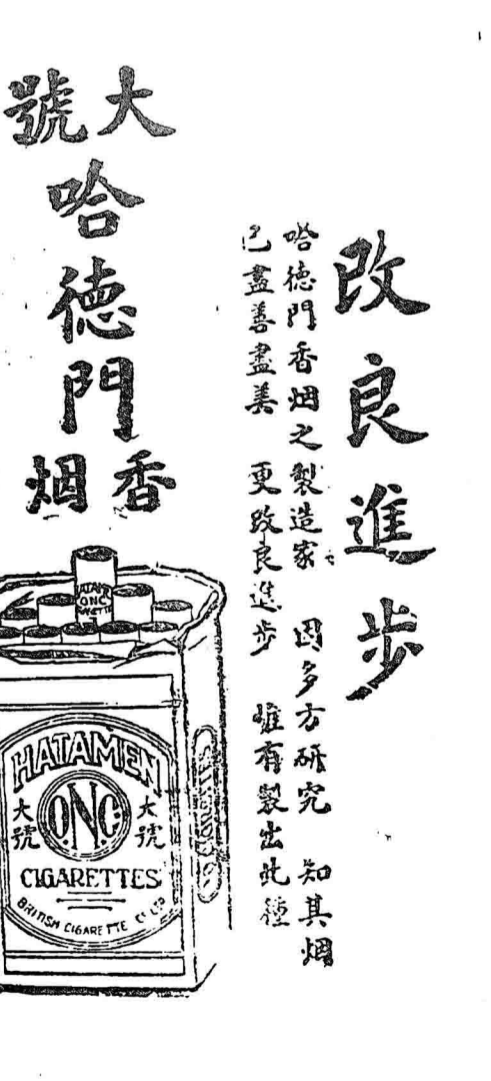 改良進步
哈德門香烟之製造家 因多方研究 知其烟
已盡善盡美 更改良進步 惟有製出此種
大號
哈德門
香烟
HATAMEN
O.N.C.
CIGARETTE
HATAMEN
O.N.C.
大號
大號
CIGARETTES
BRITISH CIGARETTE Co LTD